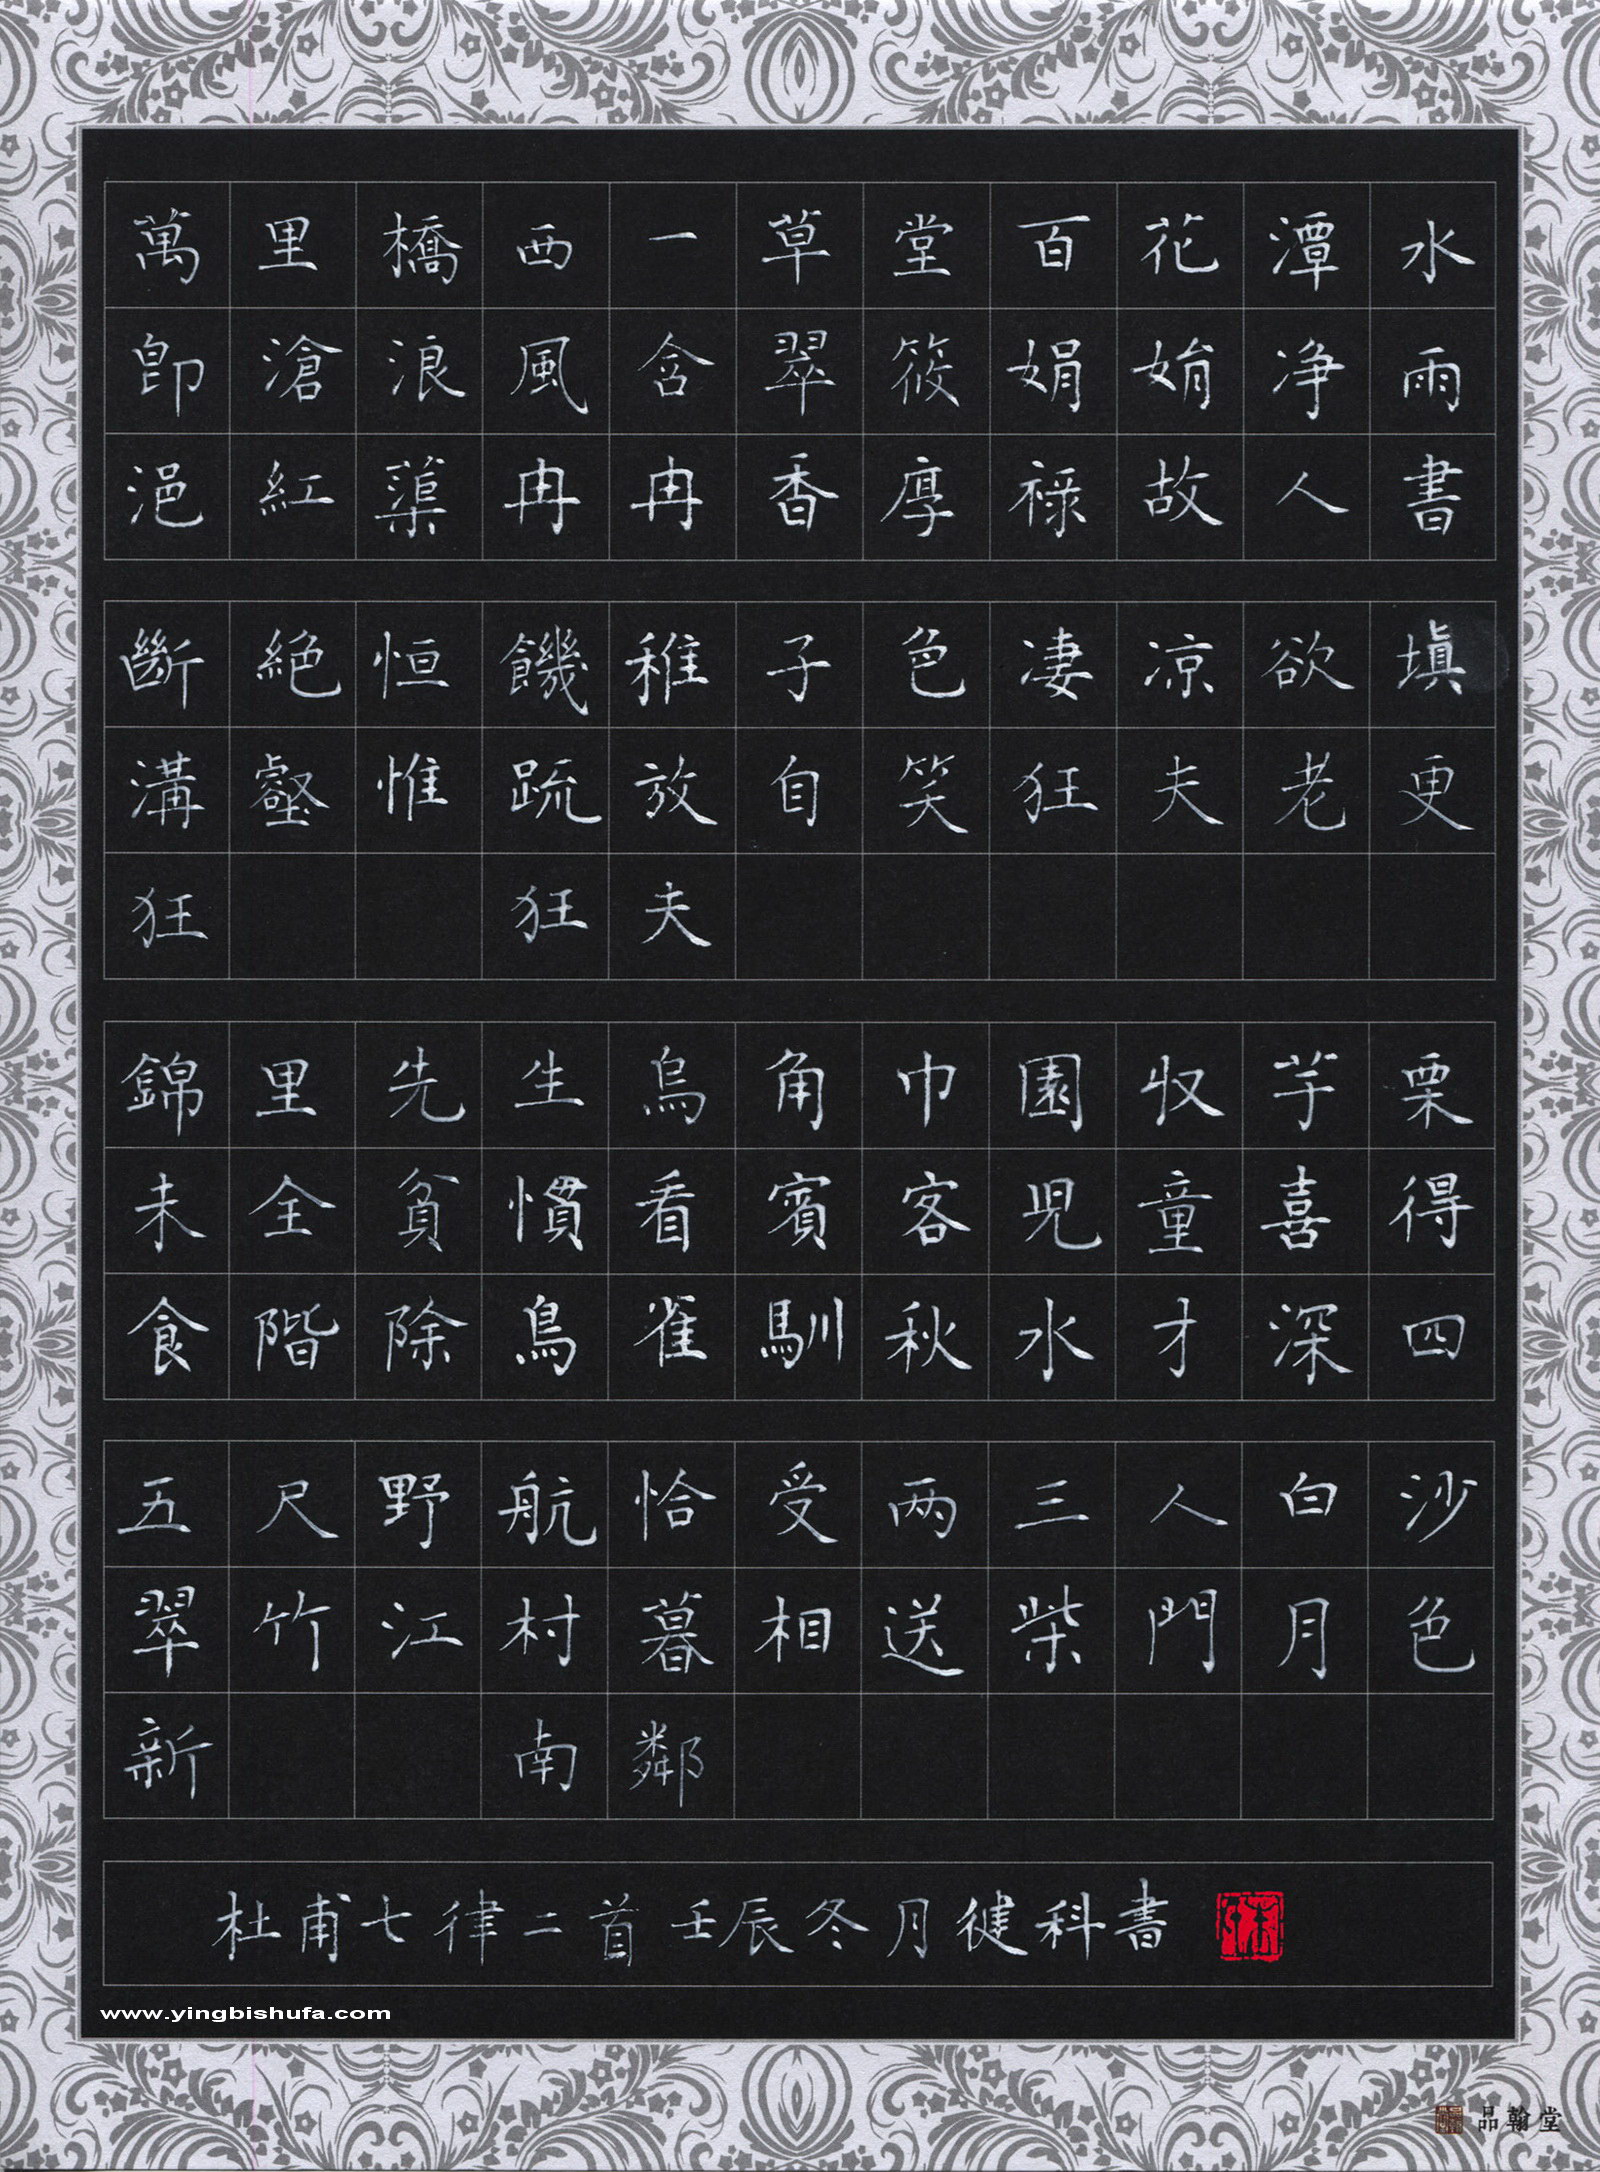 萬里橋西一草堂百花潭水
卽滄浪風含翠篠娟娟净雨
浥紅蕖冉冉香厚祿故人書
斷絕恒饑稚子色凄凉欲填
溝壑惟疏放自笑狂夫老更
狂 狂夫
錦里先生烏角巾園收芋栗
未全貧慣看賓客兒童喜得
食階除鳥雀馴秋水才深四
五尺野航恰受两三人白沙
翠竹江村暮相送柴門月色
新 南鄰
杜甫七律二首 壬辰冬月健科書
www.yingbishufa.com
品翰堂